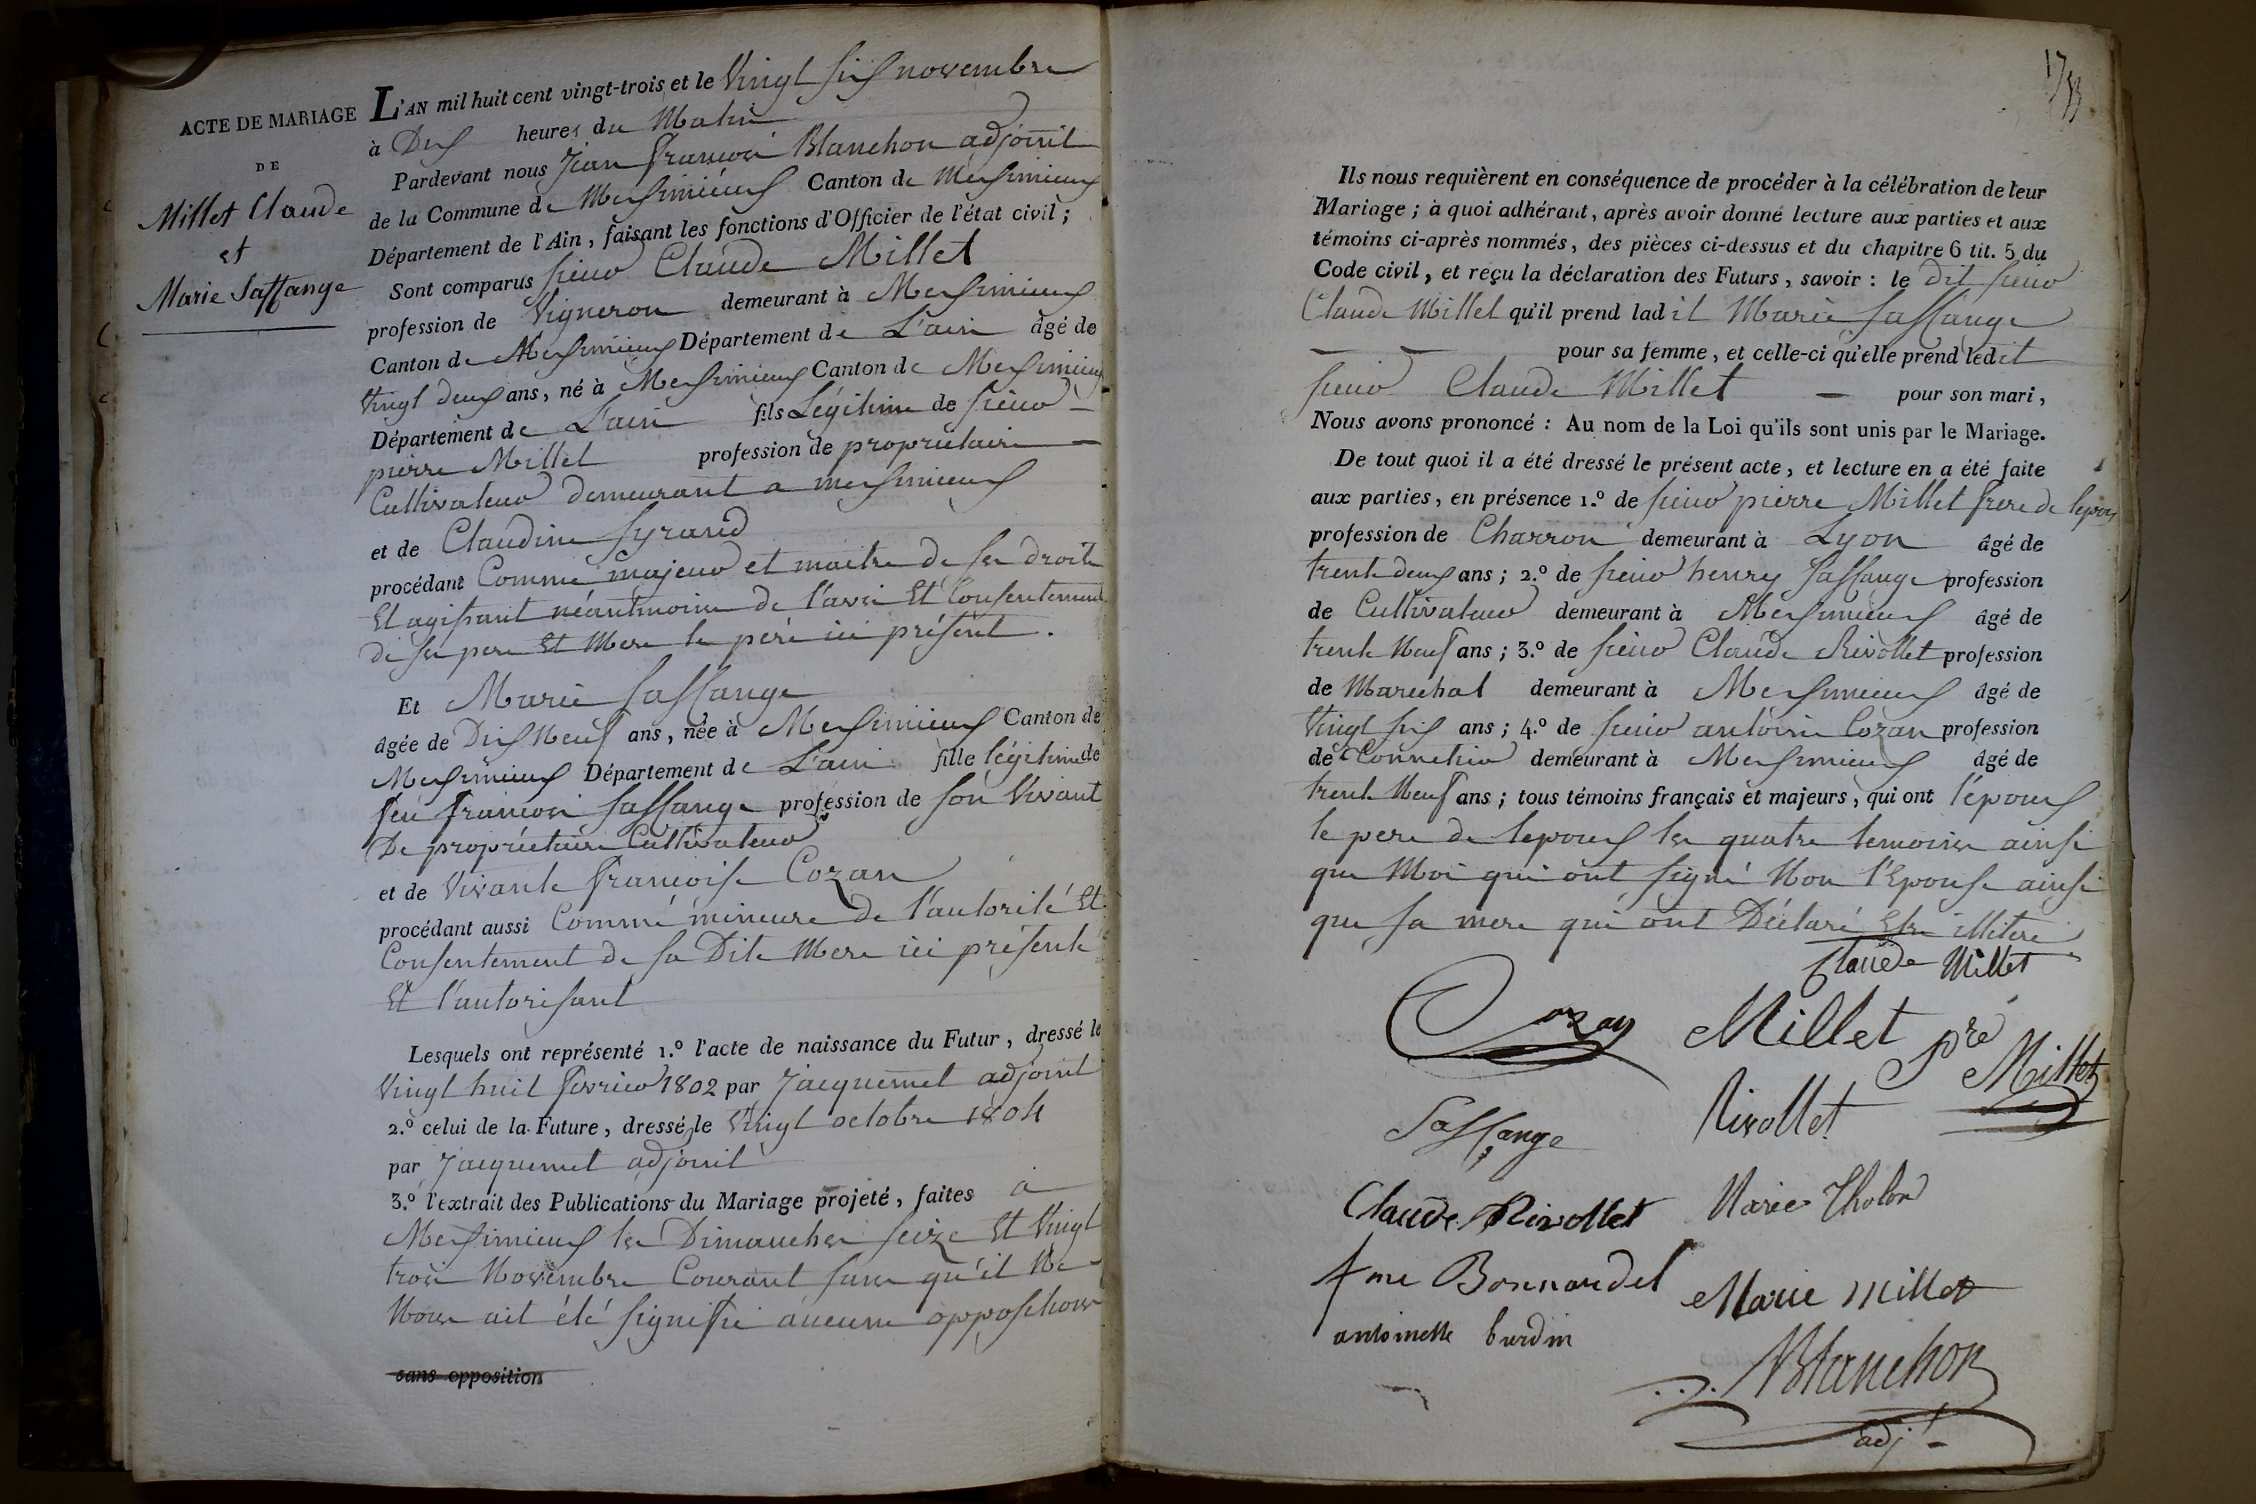 ACTE DE MARIAGE
DE
Millet Claude
et
Marie Saffange
L'AN mil huit cent vingt-trois et le Vingt six novembre
à Dix heures du Matin
Pardevant nous Jean françois Blanchon adjoint
de la Commune de Messimieux Canton de Messimieux
Département de l'Ain, faisant les fonctions d'Officier de l'état civil;
Sont comparus sieur Claude Millet
profession de Vigneron demeurant à Messimieux
Canton de Messimieux Département de L'ain âgé de
Vingt deux ans, né à Messimieux Canton de Messimieux
Département de L'ain fils Légitime de sieur
pierre Millet profession de propriétaire
Cultivateur demeurant a messimieux
et de Claudine Syrand
procédant Comme majeur et maitre de ses droits
Et agissant néantmoins de l'avis Et Consentement
de ses pere Et Mere le père ici présent.
Et Marie Saffange
âgée de Dix Neuf ans, née à Messimieux Canton de
Messimieux Département de L'ain fille légitime de
feu françois Saffange profession de son Vivant
De propriétaire Cultivateur
et de Vivante françoise Cozan
procédant aussi Comme mineure de l'autorité Et
Consentement de sa Dite Mere ici présente
Et l'autorisant
Lesquels ont représenté 1.º l'acte de naissance du Futur, dressé le
Vingt huit fevrier 1802 par Jacquemet adjoint
2.º celui de la Future, dressé le Vingt octobre 1804
par Jacquemet adjoint
3.º l'extrait des Publications du Mariage projeté, faites a
Messimieux les Dimanches seize Et Vingt
trois Novembre Courant sans qu'il Ne
Nous ait été signifié aucune oppositions
sans opposition
17
Ils nous requièrent en conséquence de procéder à la célébration de leur
Mariage; à quoi adhérant, après avoir donné lecture aux parties et aux
témoins ci-après nommés, des pièces ci-dessus et du chapitre 6 tit. 5 du
Code civil, et reçu la déclaration des Futurs, savoir: le dit sieur
Claude Millet qu'il prend ladit Marie Saffange
pour sa femme, et celle-ci qu'elle prend ledit
sieur Claude Millet pour son mari,
Nous avons prononcé: Au nom de la Loi qu'ils sont unis par le Mariage.
De tout quoi il a été dressé le présent acte, et lecture en a été faite
aux parties, en présence 1.º de sieur pierre Millet frere de lepoux
profession de Charron demeurant à Lyon âgé de
trente deux ans; 2.º de sieur henry Saffange profession
de Cultivateur demeurant à Messimieux âgé de
trente Neuf ans; 3.º de sieur Claude Rivollet profession
de Marechal demeurant à Messimieux âgé de
Vingt six ans; 4.º de sieur antoine Cozan profession
de demeurant à Messimieux âgé de
trente Neuf ans; tous témoins français et majeurs, qui ont l'époux
le pere de lepoux les quatre temoins ainsi
que Moi qui ont signé Non l'Epouse ainsi
que sa mere qui ont Déclaré Etre illitere
Claude Millet
Cozan Millet pre
Millet
Saffange Rivollet
Claude Rivollet Marie Tholon
Bonnardel Marie Millet
antoinette burdin
Blanchon
adjt